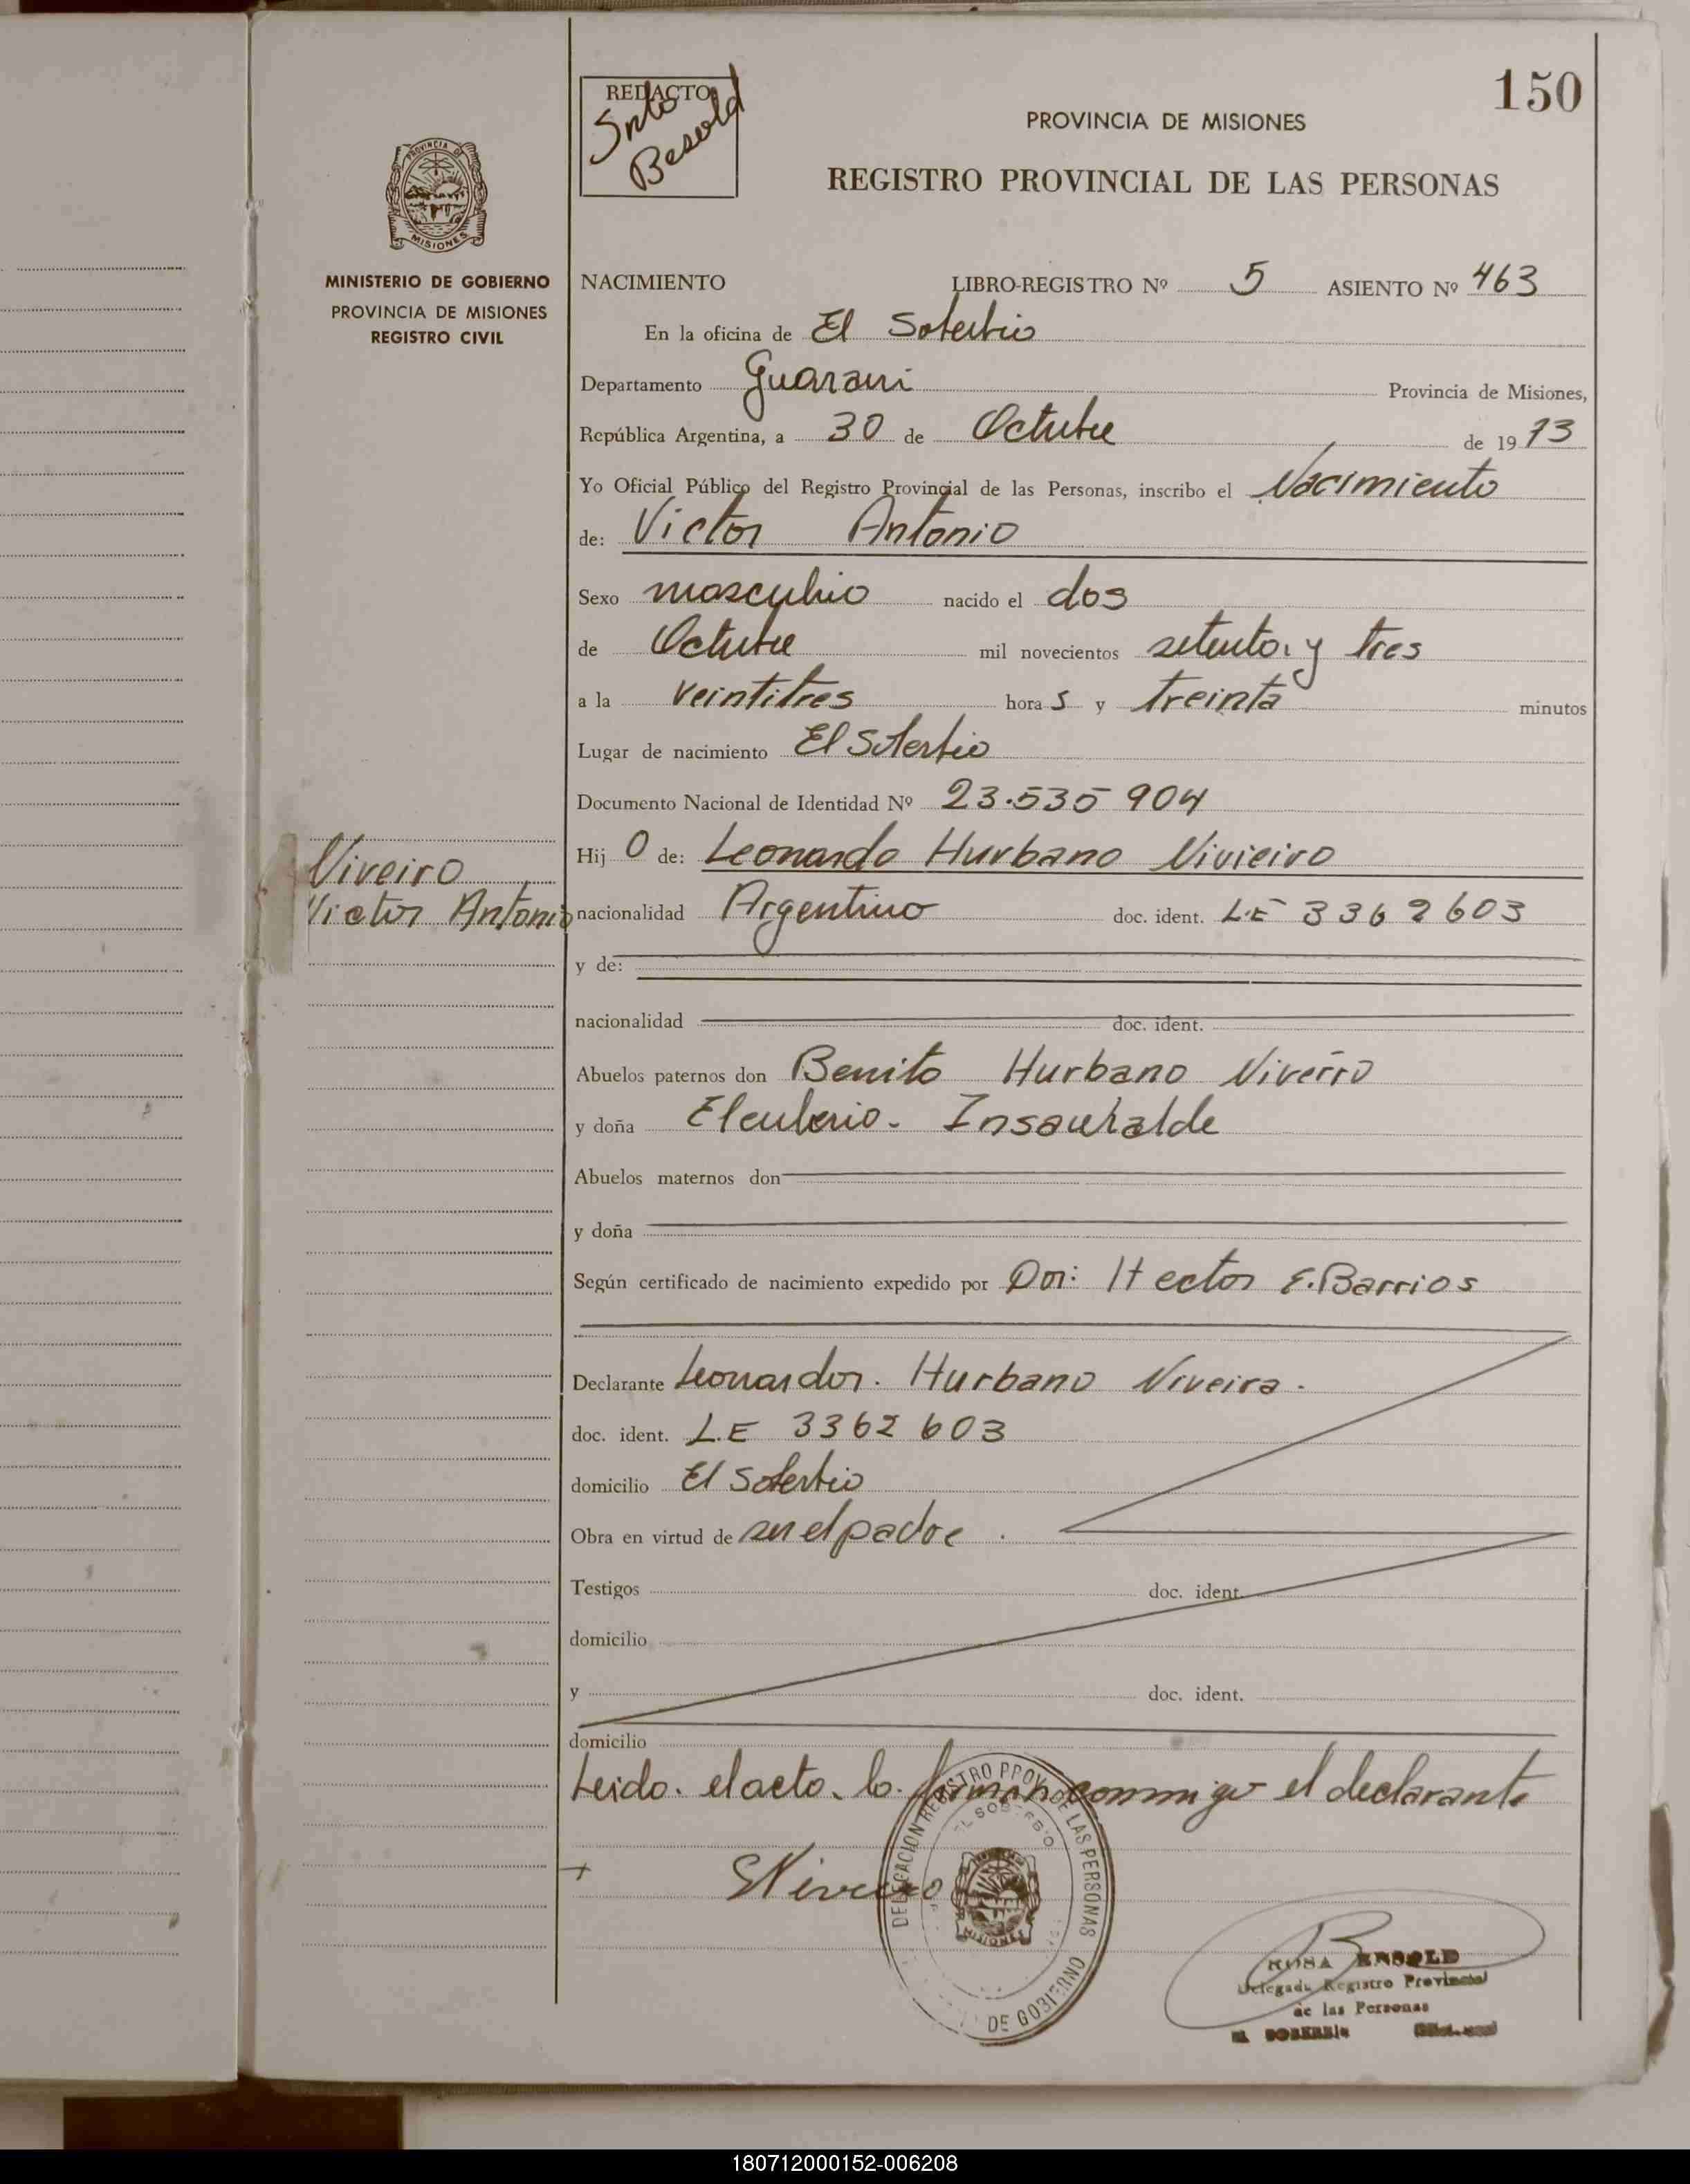 150
REDACTO:
Besold
PROVINCIA DE MISIONES
REGISTRO PROVINCIAL DE LAS PERSONAS
PROVINCIA DE
MISIONES
MINISTERIO DE GOBIERNO
PROVINCIA DE MISIONES
REGISTRO CIVIL
NACIMIENTO LIBRO-REGISTRO Nº 5 ASIENTO Nº 463
En la oficina de El Soberbio
Departamento Guarani Provincia de Misiones,
República Argentina, a 30 de Octubre de 1973
Yo Oficial Público del Registro Provincial de las Personas, inscribo el Nacimiento
de: Victor Antonio
Sexo masculino nacido el dos
de Octubre mil novecientos setenta y tres
a la veintitres hora s y treinta minutos
Lugar de nacimiento El Soberbio
Documento Nacional de Identidad Nº 23.535 904
Hij o de: Leonardo Hurbano Vivieiro
nacionalidad Argentino doc. ident. L.E 3362603
Viveiro
Victor Antonio
y de:
nacionalidad doc. ident.
Abuelos paternos don Benito Hurbano Viveiro
y doña Eleuteria Insaurralde
Abuelos maternos don
y doña
Según certificado de nacimiento expedido por Dor: Hector E. Barrios
Declarante Leonardo Hurbano Viveira.
doc. ident. L.E 3362 603
domicilio El Soberbio
Obra en virtud de ser el padre.
Testigos doc. ident.
domicilio
y doc. ident.
domicilio
Leido el acto lo firman conmigo el declarante
Viveiro
DELEGACION REGISTRO PROV. DE LAS PERSONAS
EL SOBERBIO
MISIONES
DE GOBIERNO
ROSA BESOLD
Delegada Registro Provincial
de las Personas
EL SOBERBIO
180712000152-006208